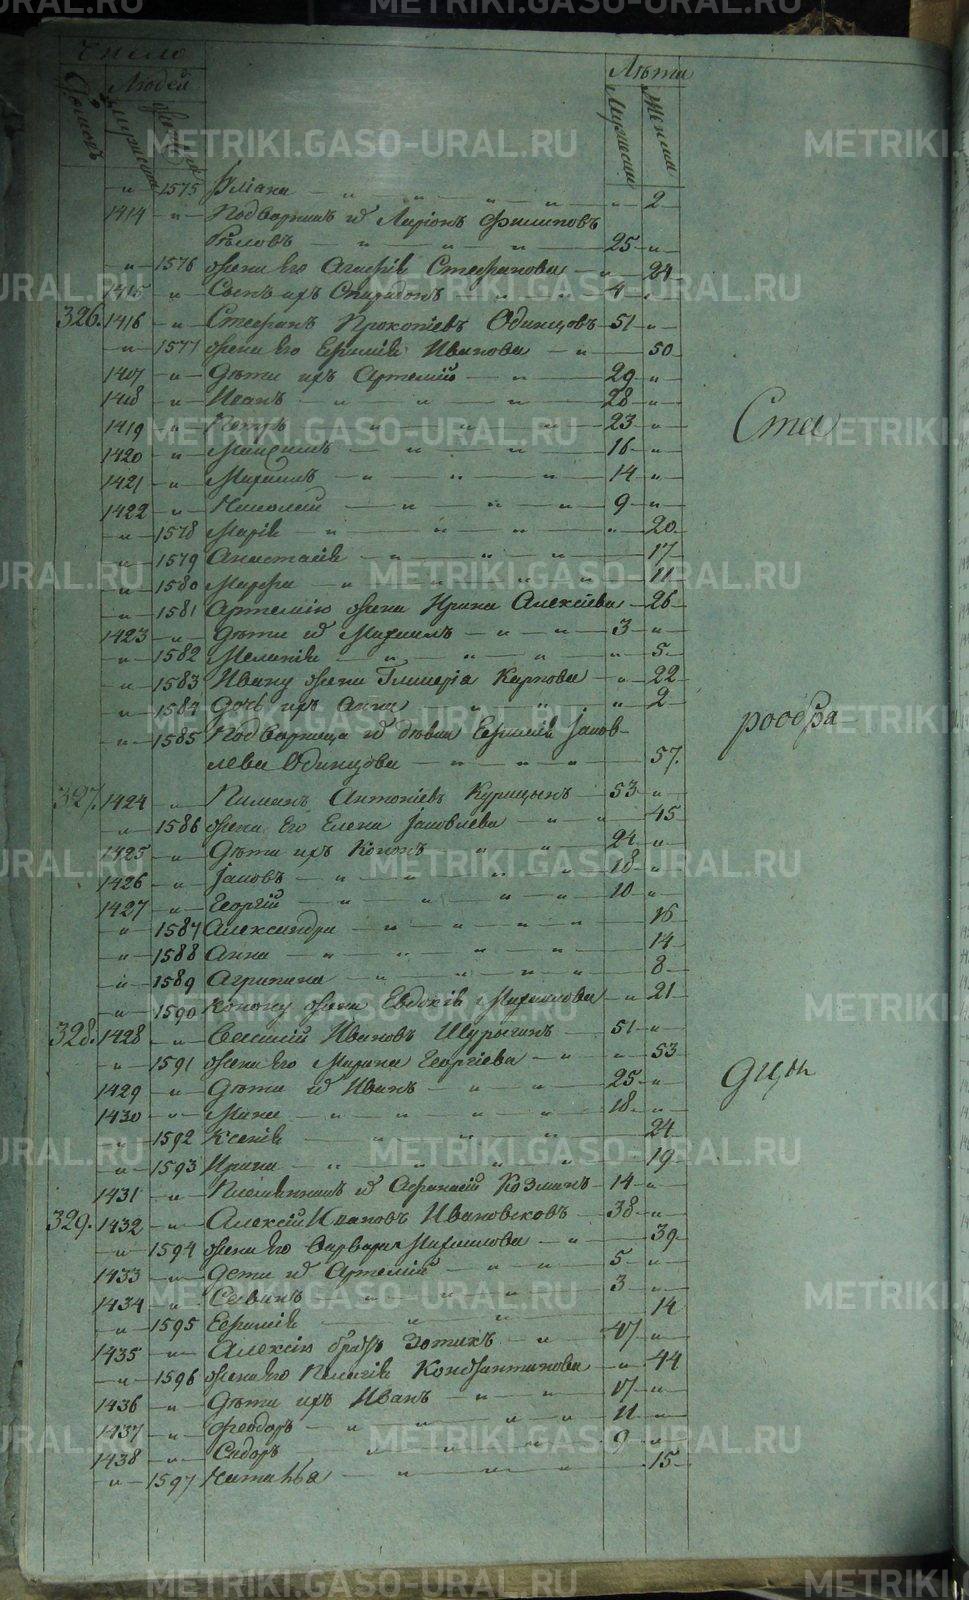 METRIKI.GASO-URAL.RU
Число
Людей
Лѣта
Домовъ
Мужеска
Женска
Мужеска
Женска
" 1575 Уліана " 2
1414 " Подворникъ ихъ Ларіонъ Филиповъ
Бѣловъ 25 "
" 1576 жена его Агафія Стефанова " 24
1415 " Сынъ ихъ Спиридонъ 4 "
326. 1416 " Стефанъ Прокопіевъ Одинцовъ 51 "
" 1577 жена его Евфимія Иванова " 50
1417 " Дѣти ихъ Артемій 29 "
1418 " Иванъ 28 "
1419 " Петръ 23 "
1420 " Максимъ 16 "
1421 " Михаилъ 14 "
1422 " Николай 9 "
" 1578 Марія " 20
" 1579 Анастасія 17
" 1580 Марфа 11
" 1581 Артемію жена Ирина Алексіева 26
1423 " Дѣти ихъ Михаилъ 3 "
" 1582 Меланія " 5
" 1583 Ивану жена Гликерія Карпова " 22
" 1584 Дочь ихъ Анна " 2
" 1585 Подворница ихъ дѣвка Евфимія Іаков-
лева Одинцова 57.
327. 1424 " Пименъ Антоніевъ Курицынъ 53 "
" 1586 жена его Елена Іаковлева 45
1425 " Дѣти ихъ Кононъ 24 "
1426 " Іаковъ 18 "
1427 " Георгій 10 "
" 1587 Александра 16
" 1588 Анна 14
" 1589 Агрипина 8
" 1590 Конону жена Евдокія Михаилова " 21
328. 1428 " Василій Ивановъ Шурыгинъ 51 "
" 1591 жена его Марина Георгіева " 53
1429 " Дѣти ихъ Иванъ 25 "
1430 " Мина 18 "
" 1592 Ксенія 24
" 1593 Ирина 19
1431 " Племянникъ ихъ Афанасій Козминъ 14 "
329. 1432 " Алексій Ивановъ Ивановсковъ 38 "
" 1594 жена его Варвара Михаилова 39.
1433 " Дети ихъ Артемій 5 "
1434 " 3 "
" 1595 Евфимія 14
1435 " Алексію братъ Зотикъ 47 "
" 1596 жена его Пелагія Константинова " 44
1436 " Дѣти ихъ Иванъ 17 "
1437 " Феодоръ 11 "
1438 " Сидоръ 9 "
" 1597 Наталья 15
Ста
рообря
дцы